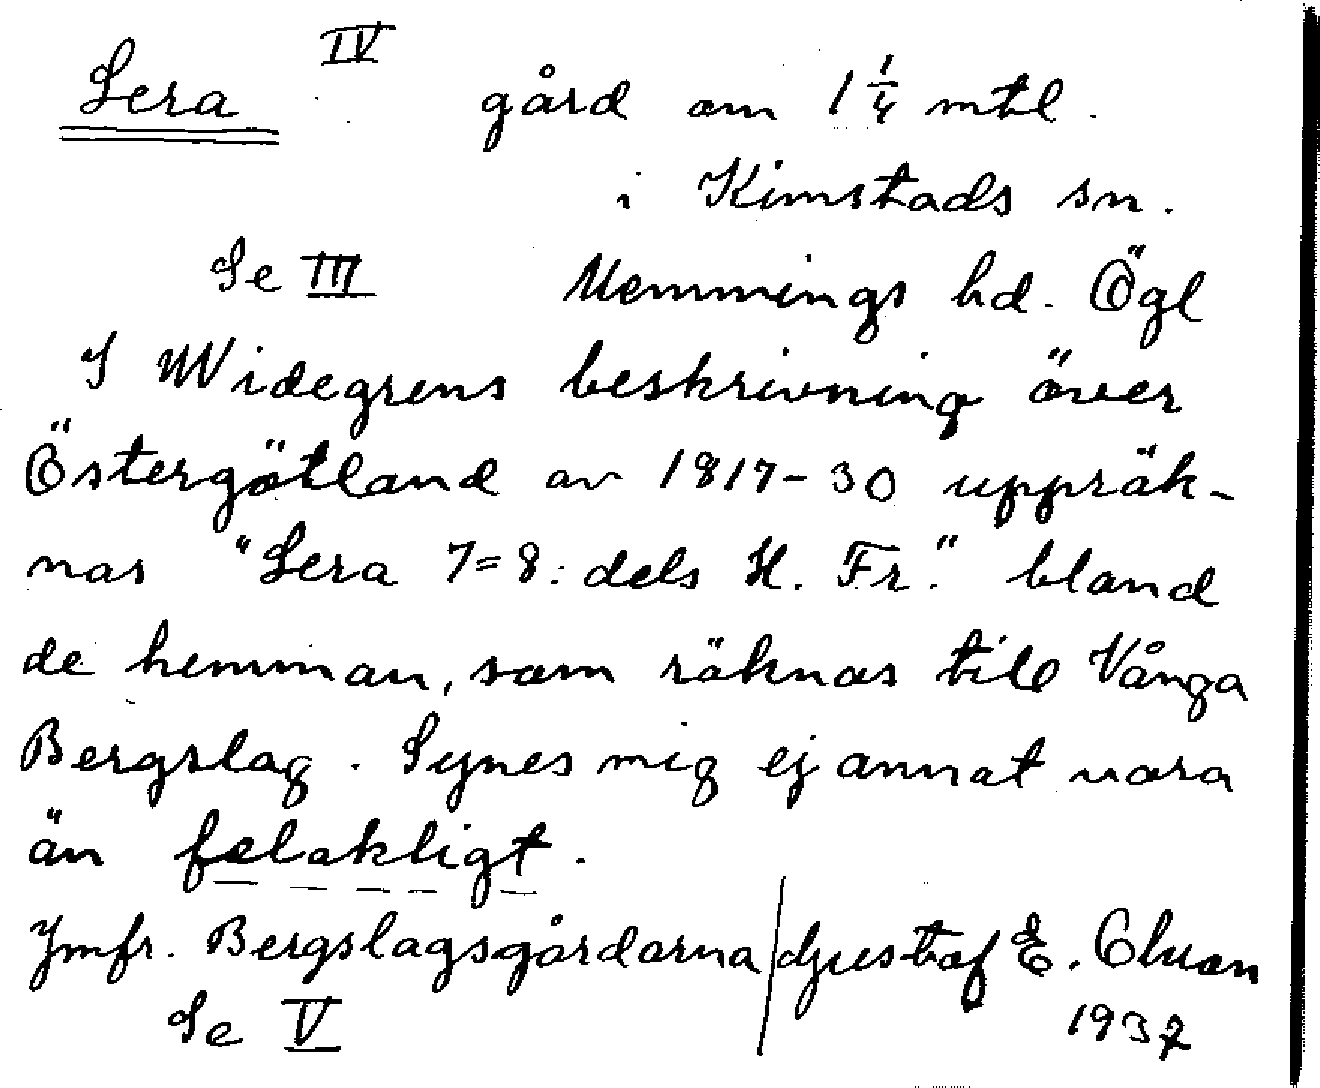 Sera IV gård om 1 1/4 mtl.
i Kimstads sn.
Se III Memmings hd. Ögl
I Widegrens beskrivning över
Östergötland av 1817-30 uppräk-
nas "Sera 7=8:dels H. Fr." bland
de hemman, som räknas till Vånga
Bergslag. Synes mig ej annat vara
än felaktligt.
Jmfr. Bergslagsgårdarna / Gustaf E.
Se V 1937